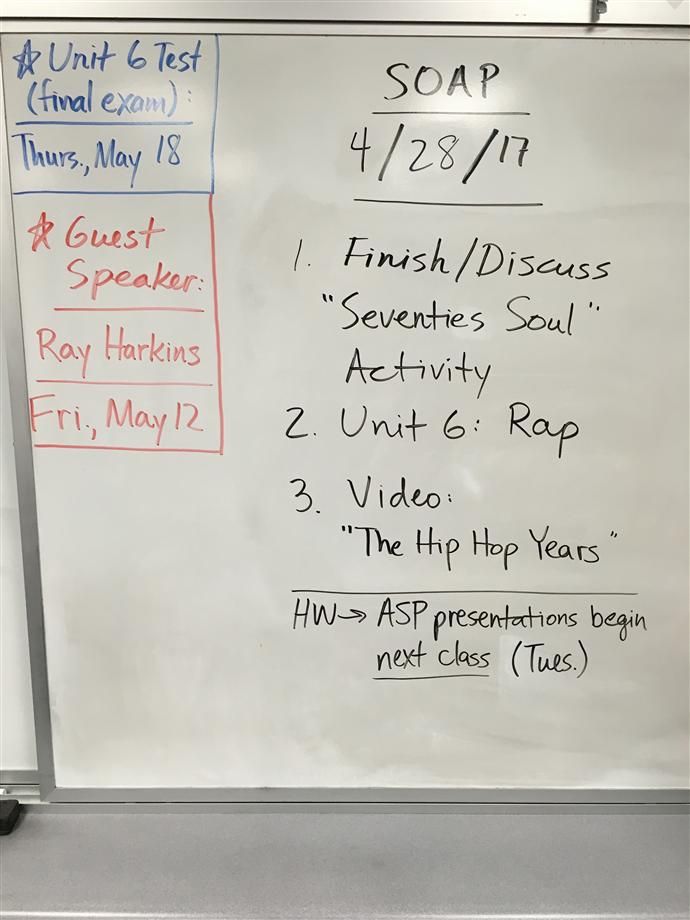 ☆ Unit 6 Test
(final exam):
Thurs., May 18
☆ Guest
Speaker:
Ray Harkins
Fri., May 12
SOAP
4/28/17
1. Finish/Discuss
"Seventies Soul"
Activity
2. Unit 6: Rap
3. Video:
"The Hip Hop Years"
HW→ ASP presentations begin
next class (Tues.)